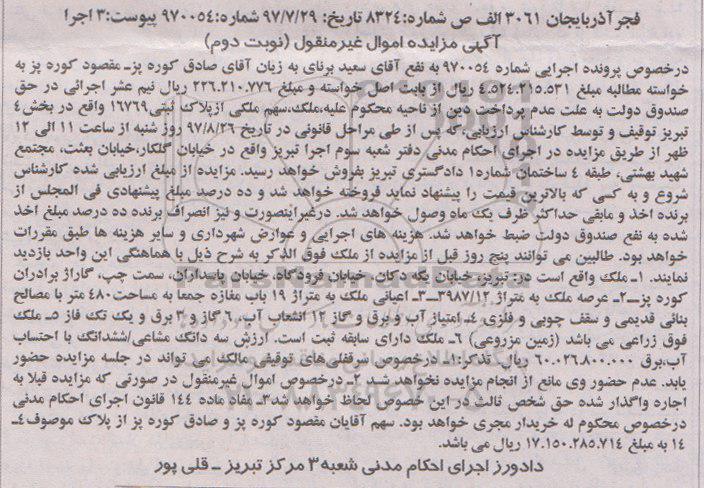 فجر آذربایجان ۳۰۶۱ الف ص شماره: ۸۳۲۴ تاریخ: ۹۷/۷/۲۹ شماره: ۹۷۰۰۵۴ پیوست: ۳ اجرا
آگهی مزایده اموال غیرمنقول (نوبت دوم)
درخصوص پرونده اجرایی شماره ۹۷۰۰۵۴ به نفع آقای سعید برفای به زیان آقای صادق کوره پز- مقصود کوره پز به
خواسته مطالبه مبلغ ۴.۵۲۴.۲۱۵.۵۳۱ ریال از بابت اصل خواسته و مبلغ ۲۲۶.۲۱۰.۷۷۶ ریال نیم عشر اجرائی در حق
صندوق دولت به علت عدم پرداخت دین از ناحیه محکوم علیه،ملک،سهم ملکی ازپلاک ثبتی ۱۶۷۶۹ واقع در بخش ۴
تبریز توقیف و توسط کارشناس ارزیابی،که پس از طی مراحل قانونی در تاریخ ۹۷/۸/۲۶ روز شنبه از ساعت ۱۱ الی ۱۲
ظهر از طریق مزایده در اجرای احکام مدنی دفتر شعبه سوم اجرا تبریز واقع در خیابان گلکار،خیابان بعثت، مجتمع
شهید بهشتی، طبقه ۴ ساختمان شماره۱ دادگستری تبریز بفروش خواهد رسید. مزایده از مبلغ ارزیابی شده کارشناس
شروع و به کسی که بالاترین قیمت را پیشنهاد نماید فروخته خواهد شد و ده درصد مبلغ پیشنهادی فی المجلس از
برنده اخذ و مابقی حداکثر ظرف یک ماه وصول خواهد شد. درغیراینصورت و نیز انصراف برنده ده درصد مبلغ اخذ
شده به نفع صندوق دولت ضبط خواهد شد. هزینه های اجرایی و عوارض شهرداری و سایر هزینه ها طبق مقررات
خواهد بود. طالبین می توانند پنج روز قبل از مزایده از ملک فوق الذکر به شرح ذیل با هماهنگی این واحد بازدید
نمایند. ۱- ملک واقع است در: تبریز،خیابان یکه دکان، خیابان فرودگاه، خیابان پاسداران، سمت چپ، گاراژ برادران
کوره پز-۲- عرصه ملک به متراژ ۳۹۸۷/۱۲-۳- اعیانی ملک به متراژ ۱۹ باب مغازه جمعا به مساحت۴۸۰ متر با مصالح
بنائی قدیمی و سقف چوبی و فلزی ۴- امتیاز آب و برق و گاز ۱۲ انشعاب آب، ۶ گاز و ۳ برق و یک تک فاز ۵- ملک
فوق زراعی می باشد (زمین مزروعی) ۶- ملک دارای سابقه ثبت است. ارزش سه دانگ مشاعی/ششدانگ با احتساب
آب،برق ۶۰.۰۲۶.۸۰۰.۰۰۰ ریال تذکر:۱- درخصوص سرقفلی‌های توقیفی مالک می تواند در جلسه مزایده حضور
یابد. عدم حضور وی مانع از انجام مزایده نخواهد شد ۲- درخصوص اموال غیرمنقول در صورتی که مزایده قبلا به
اجاره واگذار شده حق شخص ثالث در این خصوص لحاظ خواهد شد۳- مفاد ماده ۱۴۴ قانون اجرای احکام مدنی
درخصوص محکوم له خریدار مجری خواهد بود. سهم آقایان مقصود کوره پز و صادق کوره پز از پلاک موصوف۴-
۱۴ به مبلغ ۱۷.۱۵۰.۲۸۵.۷۱۴ ریال می باشد.
دادورز اجرای احکام مدنی شعبه۳ مرکز تبریز - قلی پور